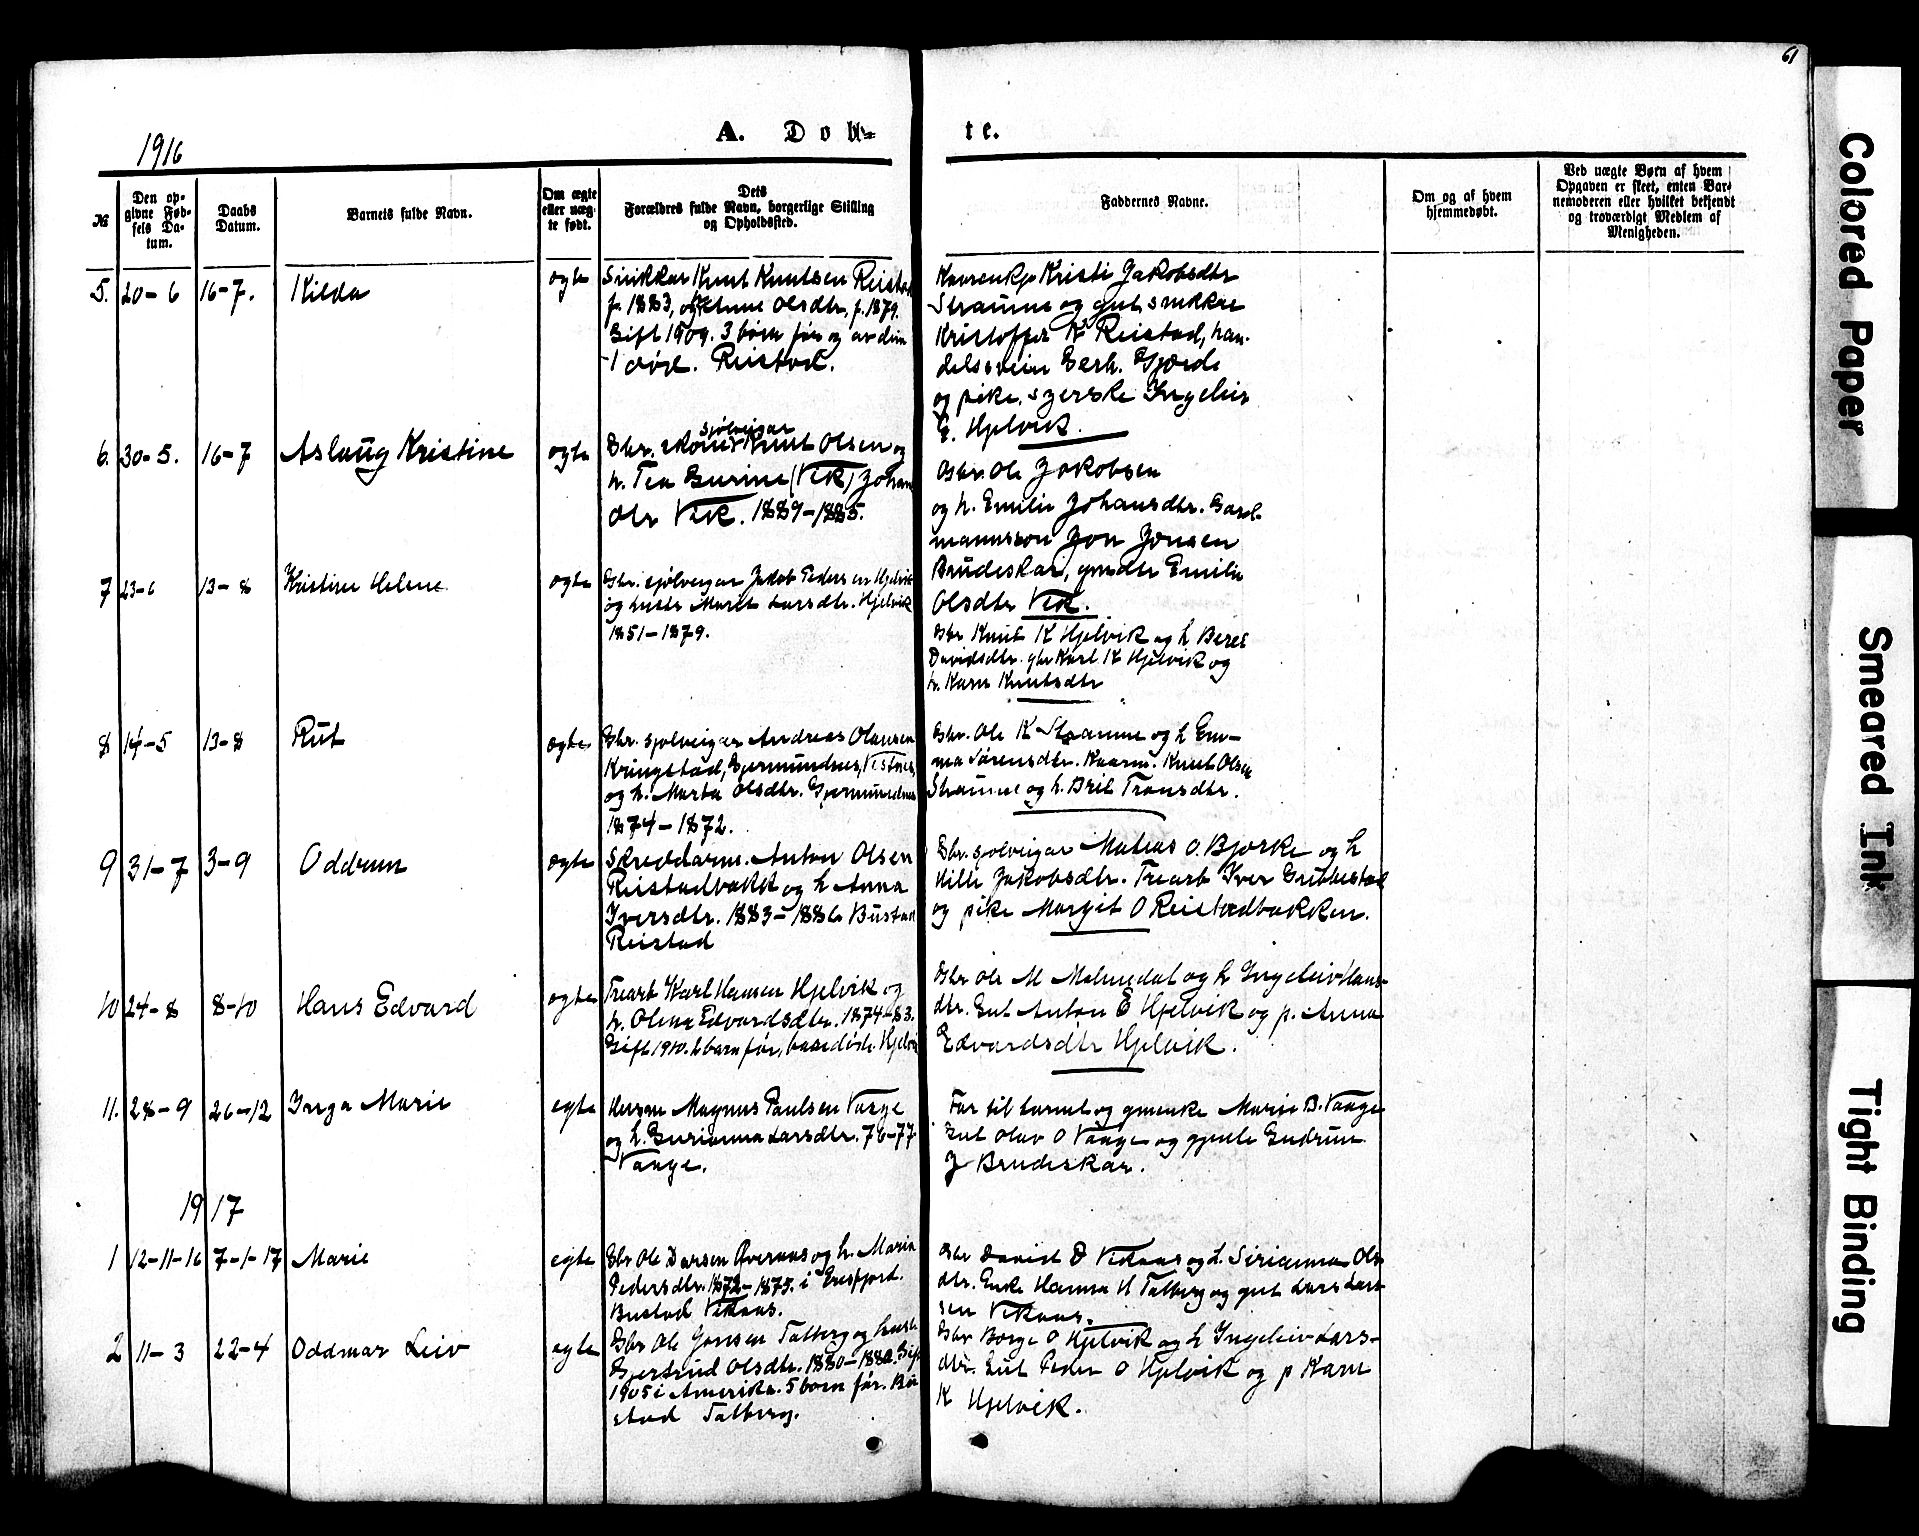 61
1916
A. Døb=
te.
№
Den op-
givne Fød-
sels Da-
tum.
Daabs
Datum.
Barnets fulde Navn.
Om ægte
eller uæg-
te født.
Dets
Forældres fulde Navn, borgerlige Stilling
og Opholdssted.
Faddernes Navne.
Om og af hvem
hjemmedøbt.
Ved uægte Børn af hvem
Opgaven er skeet, enten Bar-
nemoderen eller hvilket bekjendt
og troværdigt Medlem af
Menigheden.
5. 20-6 16-7. Kilda
ogte
Snikkar Knut Knutsen Reistad
f. 1883, og Anne Olsdtr. f. 1879.
Gift 1909. 3 børn før og av dim
1 død. Reistad.
Kristi Jakobsdtr
Straume og gut snikkar
Kristoffer K Reistad, han-
delssvein Gerh. Gjærde
og pike, syerske Ingeleiv
E. Hjelvik.
6. 30-5. 16-7 Aslaug Kristine
ogte
sjølveigar
Gbr. Knut Olsen og
h. Tea Gurine (Vik) Johans
dtr Vik. 1889-1885.
Gbr. Ole Jakobsen
og h. Emilie Johansdtr. Gard-
mannsson Jon Jonsen
Brudeskar, gmdtr Emilie
Olsdtr Vik.
7 23-6 13-8 Kristine Helene
ogte
Gbr. sjølveigar Jakob Pedersen Hjelvik
og huste Marit Larsdtr. Hjelvik
1851-1879.
Gbr Knut K Hjelvik og h Beret
Davidsdtr. gbr Karl K Hjelvik og
h. Karn Knutsdtr
8 14-5 13-8 Rut
ægte
Gbr. sjølveigar Andreas Olausen
Kringstad, Gjermundnes, Vestnes
og h. Marta Olsdtr. Gjermundnes
1874-1872.
Gbr. Ole K Straume og h Em-
ma Sørensdtr. Kaarm. Knut Olsen
Straume og h. Brit Tronsdtr.
9 31-7 3-9 Oddrun
ægte
Skreddarm. Anton Olsen
Reistadbakk og h Anna
Iversdtr. 1883-1886 Bustad
Reistad
Gbr. sjølveigar Matias O. Bjørke og h
Hilli Jakobsdtr. Trearb Iver Grubbestad
og pike Margit O Reistadbakken.
10 24-8 8-10 Hans Edvard
ogte
Trearb Karl Hansen Hjelvik og
h. Olina Edvardsdtr. 1874-83.
Gift 1910. 2 barn før, base døde. Hjelvi
Gbr Ole M Malmedal og h Ingeleiv Hans-
dtr. Gut Anton E Hjelvik og p. Anna
Edvardsdtr Hjelvik.
11. 28-9 26-12 Inga Marie
egte
Husm Magnus Paulsen Vaage
og h. Gurianna Larsdtr. 76-77
Vaage.
Far til barnet og gmenke Marie B. Vaage
Gut Olav O Vaage og gjente Gudrun
J Brudeskar.
1917
1 12-11-16 7-1-17 Marie
egte
Gbr Ole Larsen Øveraas og h. Maria
Pedersdtr. 1872-1875. i Eresfjord.
Bustad Vikaas.
Gbr David D Vikaas og h. Sirianna Ols
dtr. Enke Hanna H Talberg og gut Lars Lar-
sen Vikaas.
2 11-3 22-4 Oddmar Leiv
egte
Gbr Ole Jonsen Talberg og hust.
Gjertrud Olsdtr. 1880-1882. Gift
1905 i Amerika. 5 born før. Bu
stad Talberg.
Gbr Børge O Hjelvik og h Ingeleiv Lars-
dtr. Gut Peder O Hjelvik og p Karn
K Hjelvik.
Colored Paper
Smeared Ink
Tight Binding